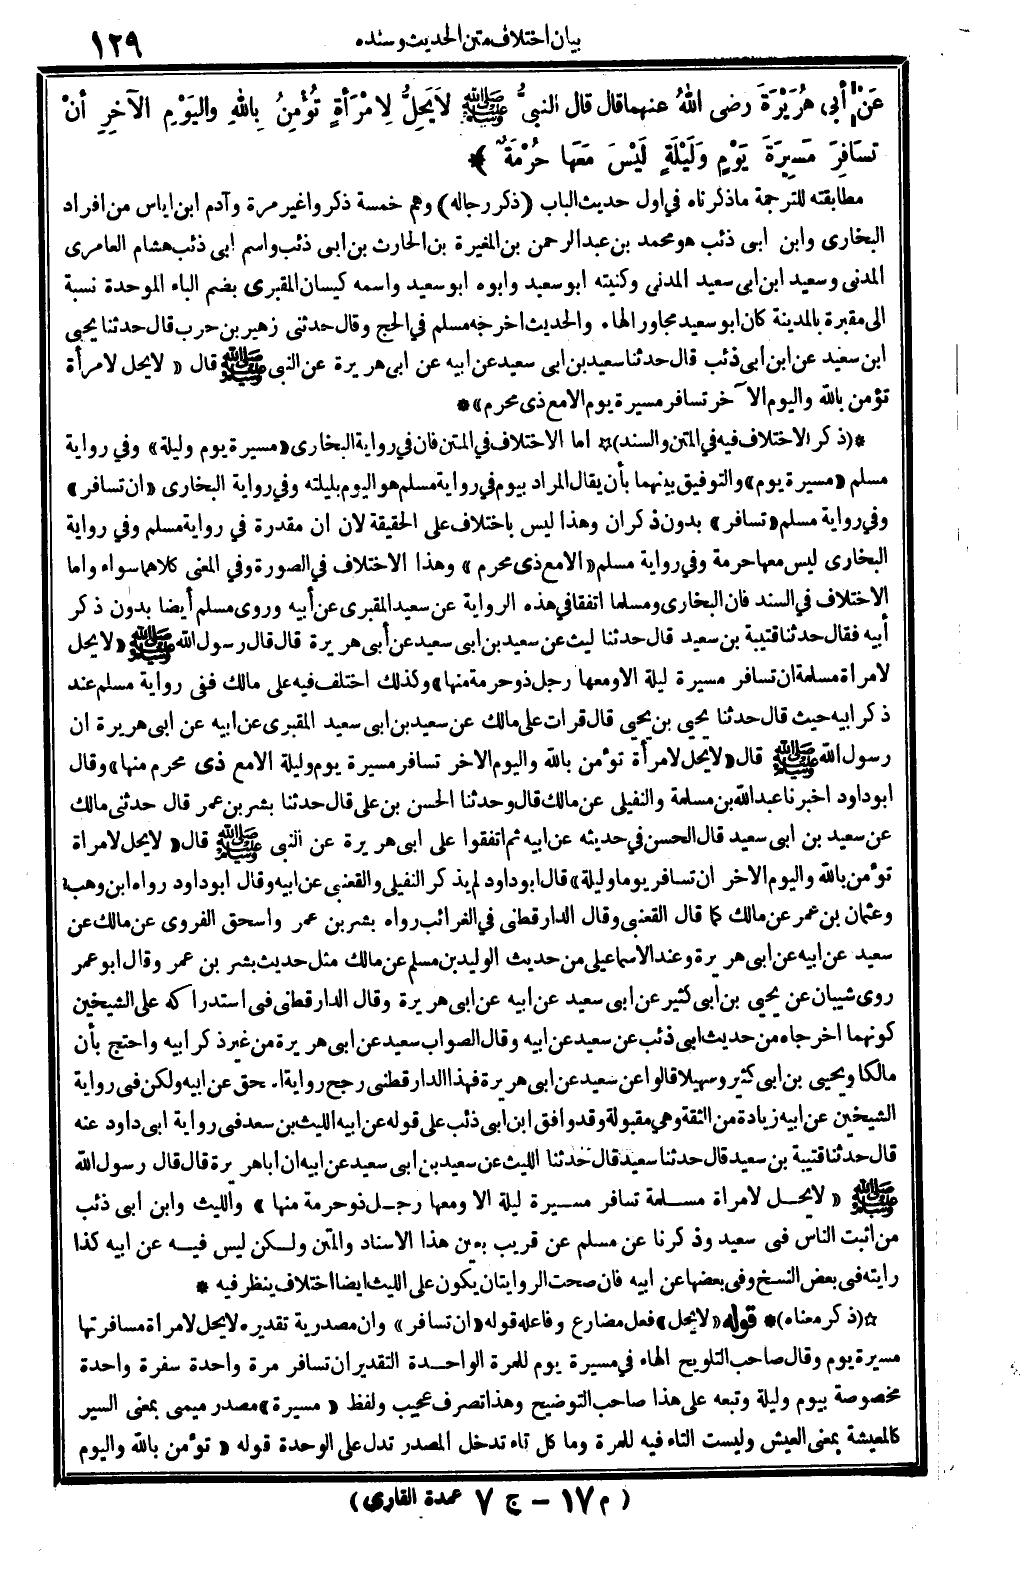 بيان اختلاف متن الحديث وسنده ١٢٩
عَنْ أبِى هُرَيْرَةَ رضى اللهُ عنهما قال قال النبىُّ ﷺ لاَ يَحِلُّ لِامْرَأةٍ تُؤْمِنُ بِاللهِ واليَوْمِ الآخِرِ أنْ
تسَافِرَ مَسِيرَةَ يَوْمٍ وَلَيْلَةٍ لَيْسَ مَعَها حُرْمَةٌ ﴾ *
مطابقته للترجمة ماذكرناه فى اول حديث الباب (ذكر رجاله) وهم خمسة ذكروا غير مرة وآدم ابن اياس من افراد
البخارى وابن ابى ذئب هو محمد بن عبدالرحمن بن المغيرة بن الحارث بن ابى ذئب واسم ابى ذئب هشام العامرى
المدنى وسعيد ابن ابى سعيد المدنى وكنيته ابو سعيد وابوه ابو سعيد واسمه كيسان المقبرى بضم الباء الموحدة نسبة
الى مقبرة بالمدينة كان ابو سعيد مجاورا لها. والحديث اخرجه مسلم فى الحج وقال حدثنى زهير بن حرب قال حدثنا يحيى
ابن سعيد عن ابن أبى ذئب قال حدثنا سعيد بن ابى سعيد عن ابيه عن ابى هريرة عن النبى ﷺ قال « لا يحل لامرأة
تؤمن بالله واليوم الآخر تسافر مسيرة يوم الا مع ذى محرم » *
*(ذكر الاختلاف فيه فى المتن والسند)☆ اما الاختلاف فى المتن فان فى رواية البخارى «مسيرة يوم وليلة» وفى رواية
مسلم «مسيرة يوم» والتوفيق بينهما بأن يقال المراد بيوم فى رواية مسلم هو اليوم بليلته وفى رواية البخارى «ان تسافر»
وفى رواية مسلم «تسافر» بدون ذكر ان وهذا ليس باختلاف على الحقيقة لان ان مقدرة فى رواية مسلم وفى رواية
البخارى ليس معها حرمة وفى رواية مسلم «الا مع ذى محرم» وهذا الاختلاف فى الصورة وفى المعنى كلاهما سواء واما
الاختلاف فى السند فان البخارى ومسلما اتفقا فى هذه الرواية عن سعيد المقبرى عن أبيه وروى مسلم أيضا بدون ذكر
أبيه فقال حدثنا قتيبة بن سعيد قال حدثنا ليث عن سعيد بن ابى سعيد عن أبى هريرة قال قال رسول الله ﷺ « لا يحل
لامراة مسلمة ان تسافر مسيرة ليلة الا ومعها رجل ذو حرمة منها» وكذلك اختلف فيه على مالك ففى رواية مسلم عند
ذكر ابيه حيث قال حدثنا يحيى بن يحيى قال قرات على مالك عن سعيد بن ابى سعيد المقبرى عن ابيه عن ابى هريرة ان
رسول الله ﷺ قال «لا يحل لامرأة تؤمن بالله واليوم الاخر تسافر مسيرة يوم وليلة الا مع ذى محرم منها» وقال
ابو داود اخبرنا عبدالله بن مسلمة والنفيلى عن مالك قال وحدثنا الحسن بن على قال حدثنا بشر بن عمر قال حدثنى مالك
عن سعيد بن ابى سعيد قال الحسن فى حديثه عن ابيه ثم اتفقوا على ابى هريرة عن النبى ﷺ قال «لا يحل لامراة
تؤمن بالله واليوم الاخر ان تسافر يوما وليلة» قال ابو داود لم يذكر النفيلى والقعنبى عن ابيه وقال ابو داود رواه ابن وهب
وعثمان بن عمر عن مالك كما قال القعنبى وقال الدارقطنى فى الغرائب رواه بشر بن عمر واسحق الفروى عن مالك عن
سعيد عن ابيه عن ابى هريرة وعند الاسماعيلى من حديث الوليد بن مسلم عن مالك مثل حديث بشر بن عمر وقال ابو عمر
روى شيبان عن يحيى بن ابى كثير عن ابى سعيد عن ابيه عن ابى هريرة وقال الدارقطنى فى استدراكه على الشيخين
كونهما اخرجاه من حديث ابى ذئب عن سعيد عن ابيه وقال الصواب سعيد عن ابى هريرة من غير ذكر ابيه واحتج بأن
مالكا ويحيى بن ابى كثير وسهيلا قالوا عن سعيد عن ابى هريرة فهذا الدارقطنى رجح رواية ا. حق عن ابيه ولكن فى رواية
الشيخين عن ابيه زيادة من الثقة وهى مقبولة وقد وافق ابن ابى ذئب على قوله عن ابيه الليث بن سعد فى رواية ابى داود عنه
قال حدثنا قتيبة بن سعيد قال حدثنا سعيد قال حدثنا الليث عن سعيد بن ابى سعيد عن ابيه ان ابا هريرة قال قال رسول الله
ﷺ « لا يحل لامراة مسلمة تسافر مسيرة ليلة الا ومعها رجل ذو حرمة منها » والليث وابن ابى ذئب
من اثبت الناس فى سعيد وذكرنا عن مسلم عن قريب بعين هذا الاسناد والمتن ولكن ليس فيه عن ابيه كذا
رايته فى بعض النسخ وفى بعضها عن ابيه فان صحت الروايتان يكون على الليث ايضا اختلاف ينظر فيه *
☆(ذكر معناه)* قوله «لا يحل» فعل مضارع وفاعله قوله «ان تسافر» وان مصدرية تقديره لا يحل لامراة مسافرتها
مسيرة يوم وقال صاحب التلويح الهاء فى مسيرة يوم للمرة الواحدة التقدير ان تسافر مرة واحدة سفرة واحدة
مخصوصة بيوم وليلة وتبعه على هذا صاحب التوضيح وهذا تصرف عجيب ولفظ « مسيرة» مصدر ميمى بمعنى السير
كالمعيشة بمعنى العيش وليست التاء فيه للمرة وما كل تاء تدخل المصدر تدل على الوحدة قوله « تؤمن بالله واليوم
(م ١٧ – ج ٧ عمدة القارى)